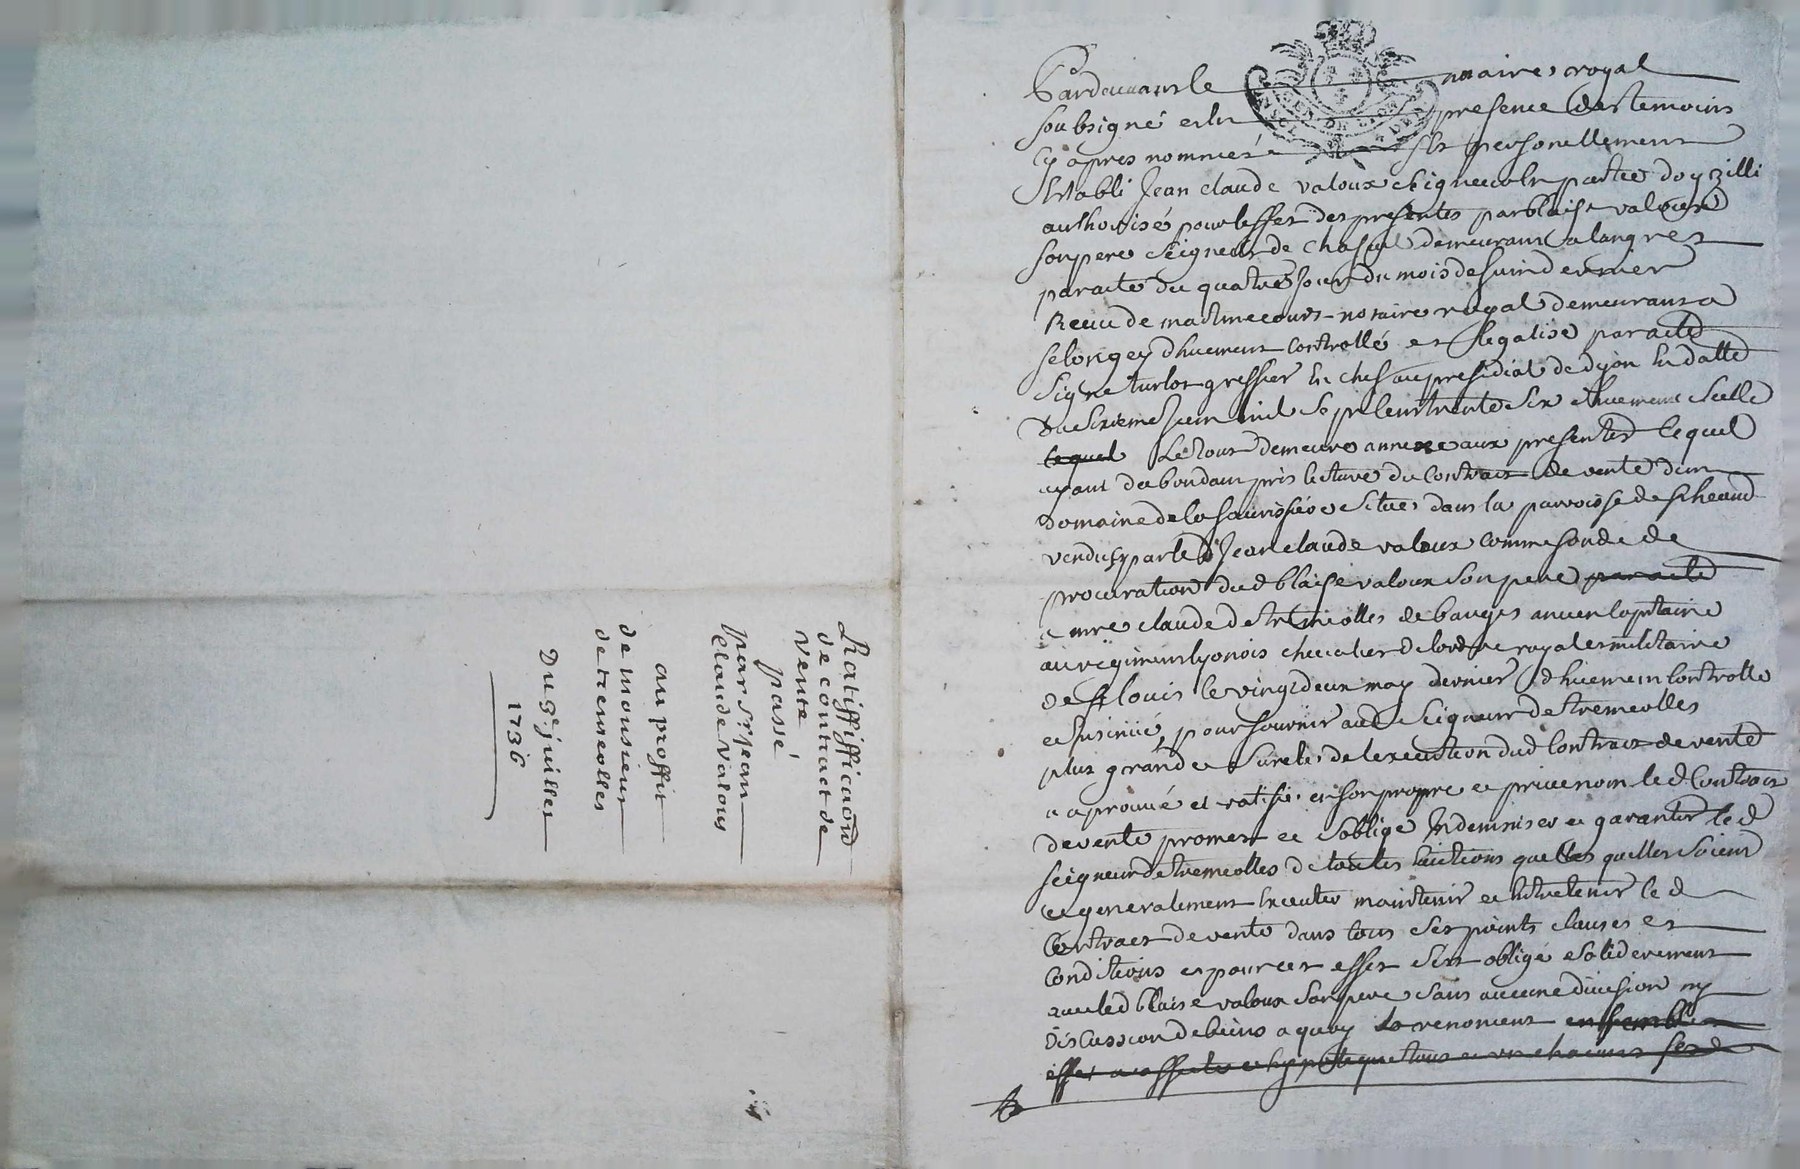 Ratiffifficaôn
de contract de
vente
passé
par Sr. jean
Claude Valous
au proffit
de monsieur
de tremeolles
Du 3e. juillet
1736
Pardevant le notaire royal
soubsigné et en presence des temoins
cy apres nommés est personellement
Establi Jean claude valoux seigneur en partie
authorisé pour leffet des presentes par blaise valoux
son pere seigneur de demeurant a langres
par acte du quatre jour du mois de juin dernier
Receu de notaire royal demeurant a
selongey dhuement controllé et legalisé par acte
signé turlot greffier en chef au presidial de dijon en datte
du sixieme juin mil sept cent trente six dhuement scellé
lequel Le tout demeure annexé aux presentes lequel
ayant dabondant pris lecture du contract de vente dun
domaine de situé dans la parroisse de
vendu par led Jean claude valoux comme fondé de
procuration dud blaise valoux son pere par acte
a mre claude de tremeolles de bauges ancien Capitaine
au regiment lyonois chevalier de lordre royal et militaire
de st louis le vingt deux may dernier dhuement Controllé
et insinué, pour fournir aud seigneur de tremeolles
plus grande sureté de lexecution dud Contract de vente
a aprouvé et ratifié en son propre et privé nom led Contract
de vente promet et soblige Indemniser et garantir led
seigneur de tremeolles de toutes evictions quelles quelles soient
et generalement Executer maintenir et entretenir led
Contract de vente dans tous ses points clauses et
Conditions et pour cet effet sest obligé solidairement
avec led blaise valoux son pere sans aucune division ny
Discussion de biens a quoy renoncent ensemble
effet a affecté et hypotequé tous et un chacuns ses d